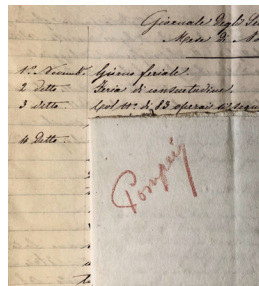 Giornale Degli
Mese Di
1º Novemb. Giorno feriale.
2 detto Feria di consuetudine.
3 detto Col Nº di 13 operai si
4 Detto
Pompei